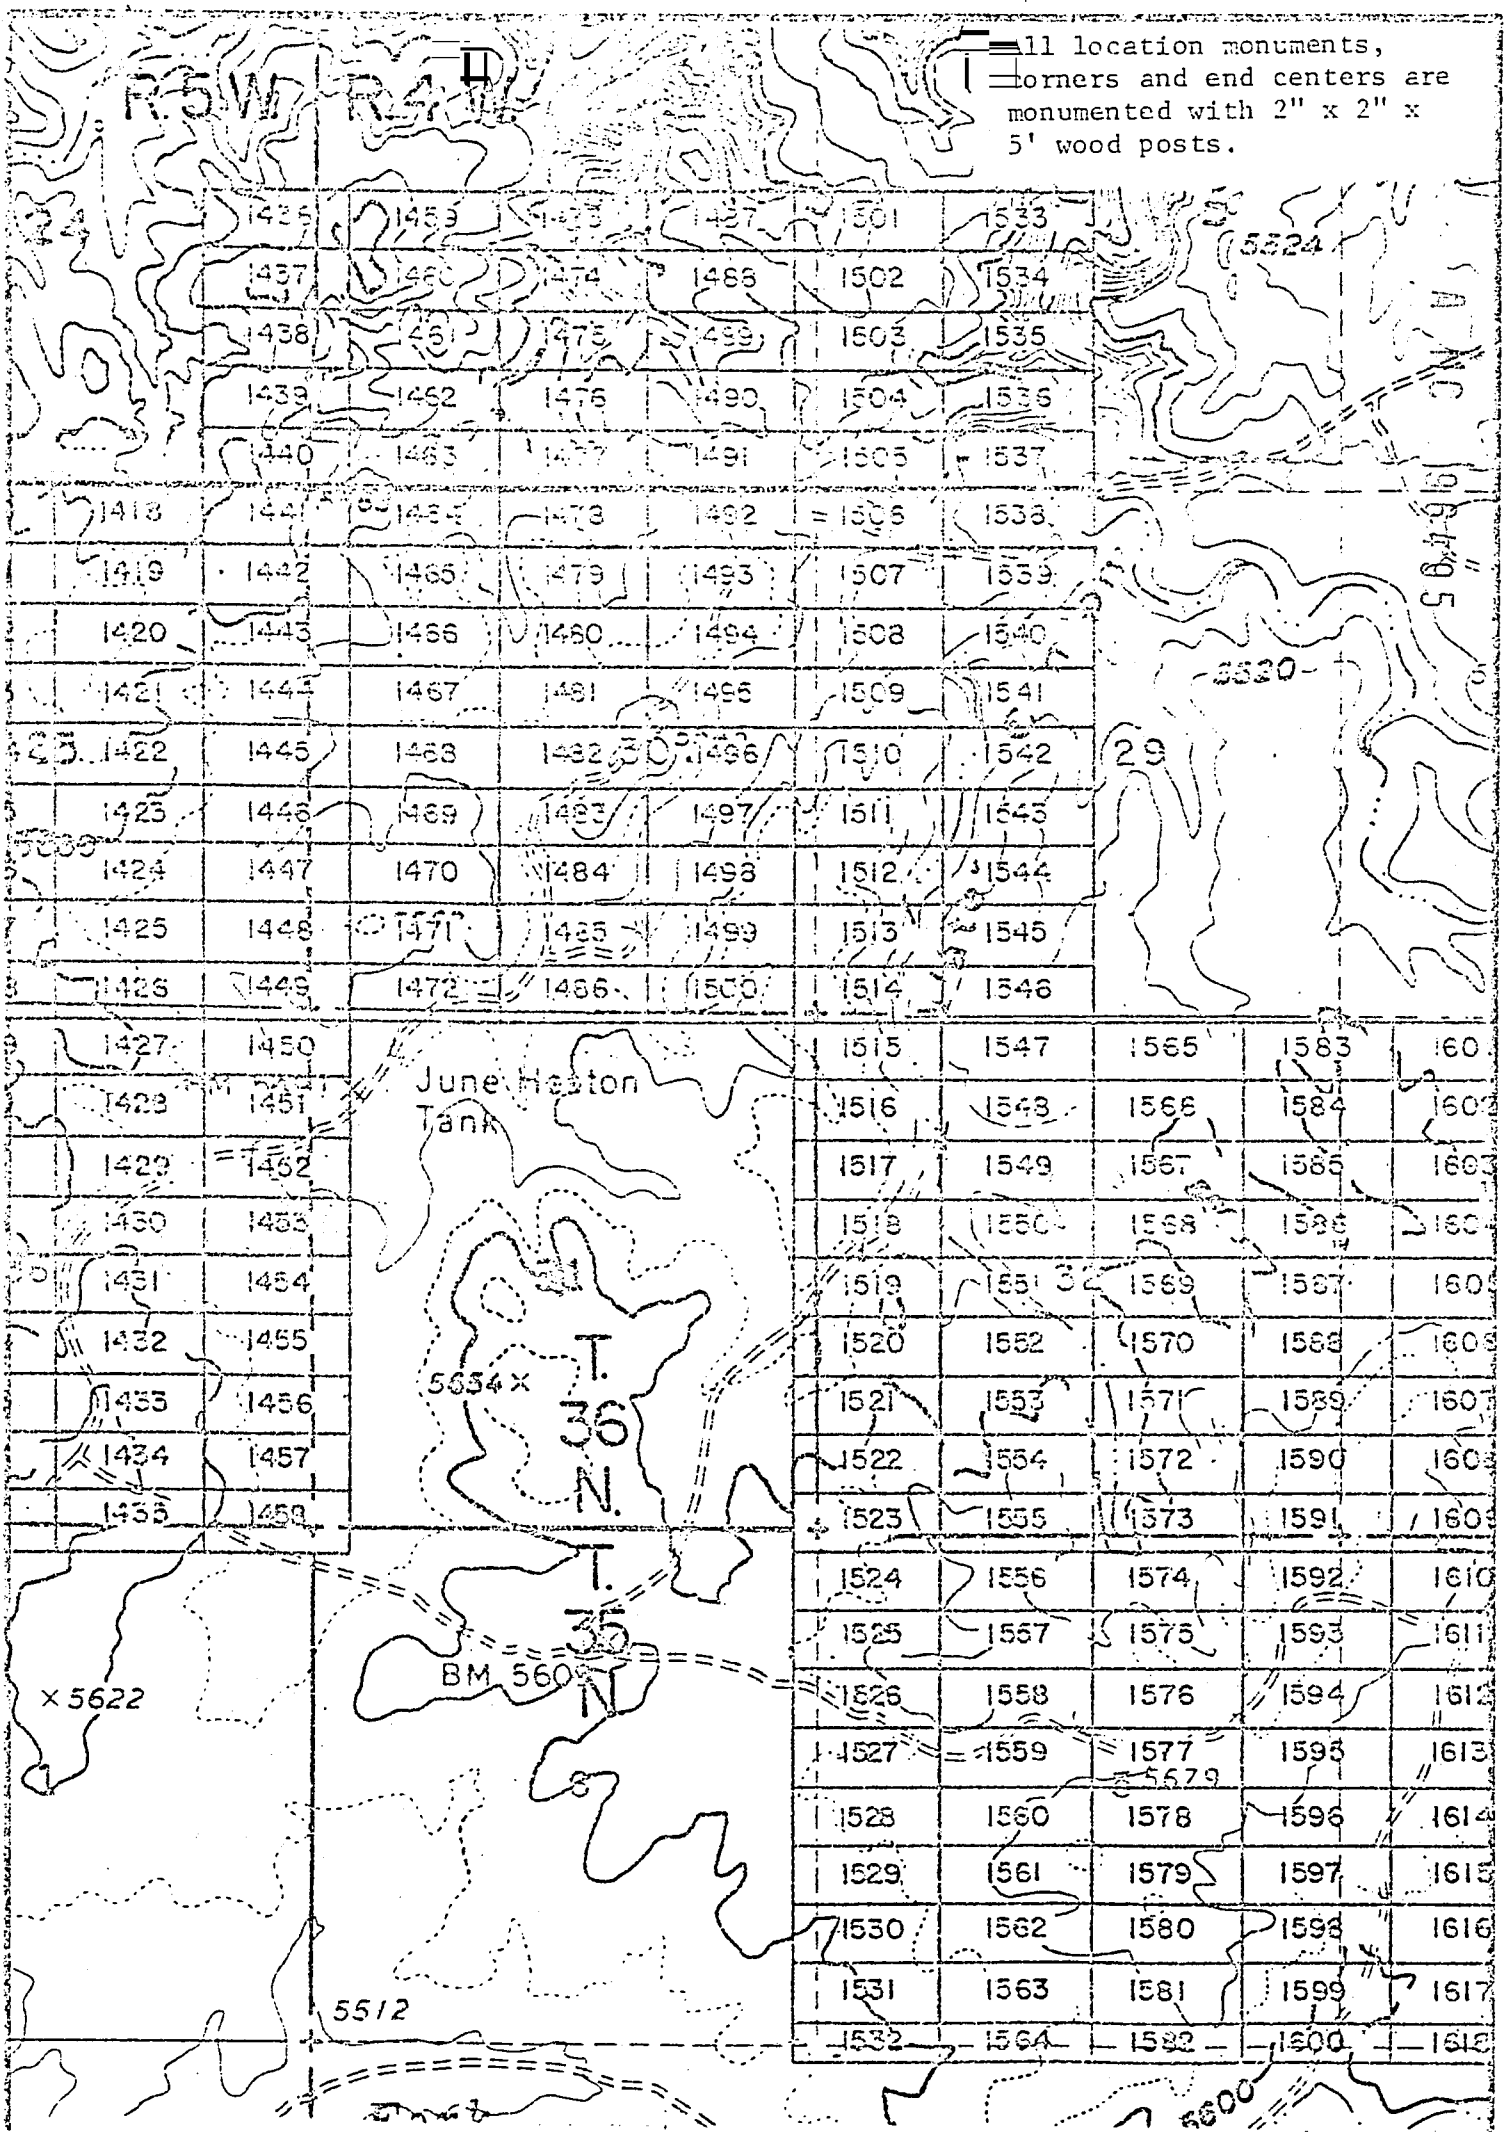 R.5 W. R.4 W.
All location monuments,
corners and end centers are
monumented with 2" x 2" x
5' wood posts.
1459 1501 1533
5524
1437 1474 1488 1502 1534
1438 1461 1475 1503 1535
1439 1462 1476 1490 1504 1536
1440 1463 1491 1505 1537
1418 1441 1464 1478 1492 1506 1538
1419 1442 1465 1479 1493 1507 1539
1420 1443 1466 1480 1494 1508 1540
1421 1444 1467 1481 1495 1509 1541
5520
1422 1445 1468 1482 30 1496 1510 1542 29
1423 1446 1469 1483 1497 1511 1543
1424 1447 1470 1484 1498 1512 1544
1425 1448 1471 1485 1499 1513 1545
1426 1449 1472 1486 1500 1514 1546
1427 1450 1515 1547 1565 1583 160
June Heaton
Tank
1428 1451 1516 1548 1566 1584 1602
1429 1452 1517 1549 1567 1585 1603
1430 1453 1518 1550 1568 1586 160
1431 1454 1519 1551 32 1569 1587 160
1432 1455 T. 1520 1552 1570 1588 160
5654 ×
1433 1456 36 1521 1553 1571 1589 1607
1434 1457 N. 1522 1554 1572 1590 160
1435 1458 1523 1555 1573 1591 1609
T. 1524 1556 1574 1592 1610
35 1525 1557 1575 1593 1611
BM 560
× 5622 N 1526 1558 1576 1594 1612
1527 1559 1577 1595 1613
5679
1528 1560 1578 1596 1614
1529 1561 1579 1597 1615
1530 1562 1580 1598 1616
1531 1563 1581 1599 1617
5512
1532 1564 1582 1600 1618
5600